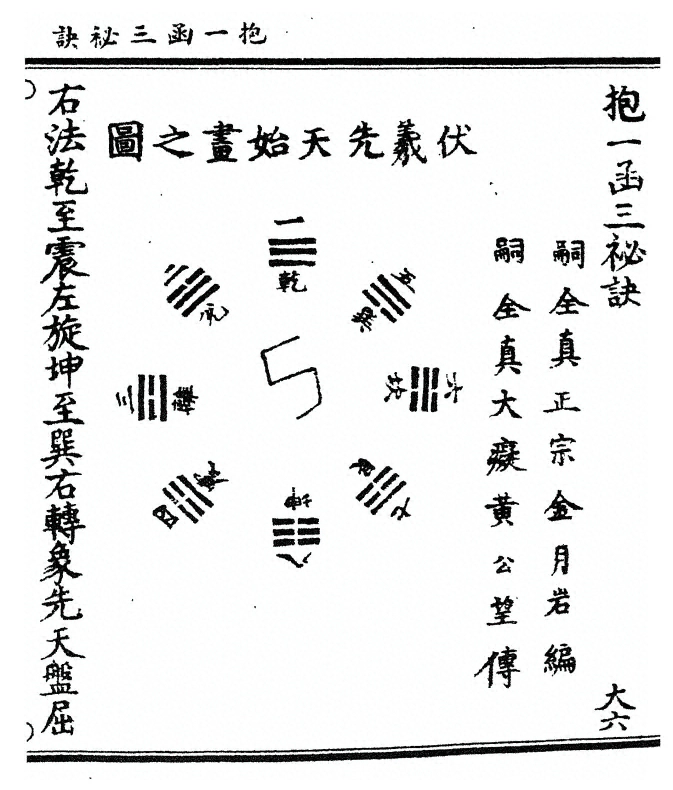 抱一函三祕訣
抱一函三祕訣
大六
嗣全真正宗金月岩編
嗣全真大癡黃公望傳
伏羲先天始畫之圖
一
乾
兌
三
離
四
震
五
巽
六
坎
七
艮
八
坤
右法乾至震左旋坤至巽右轉象先天盤屈